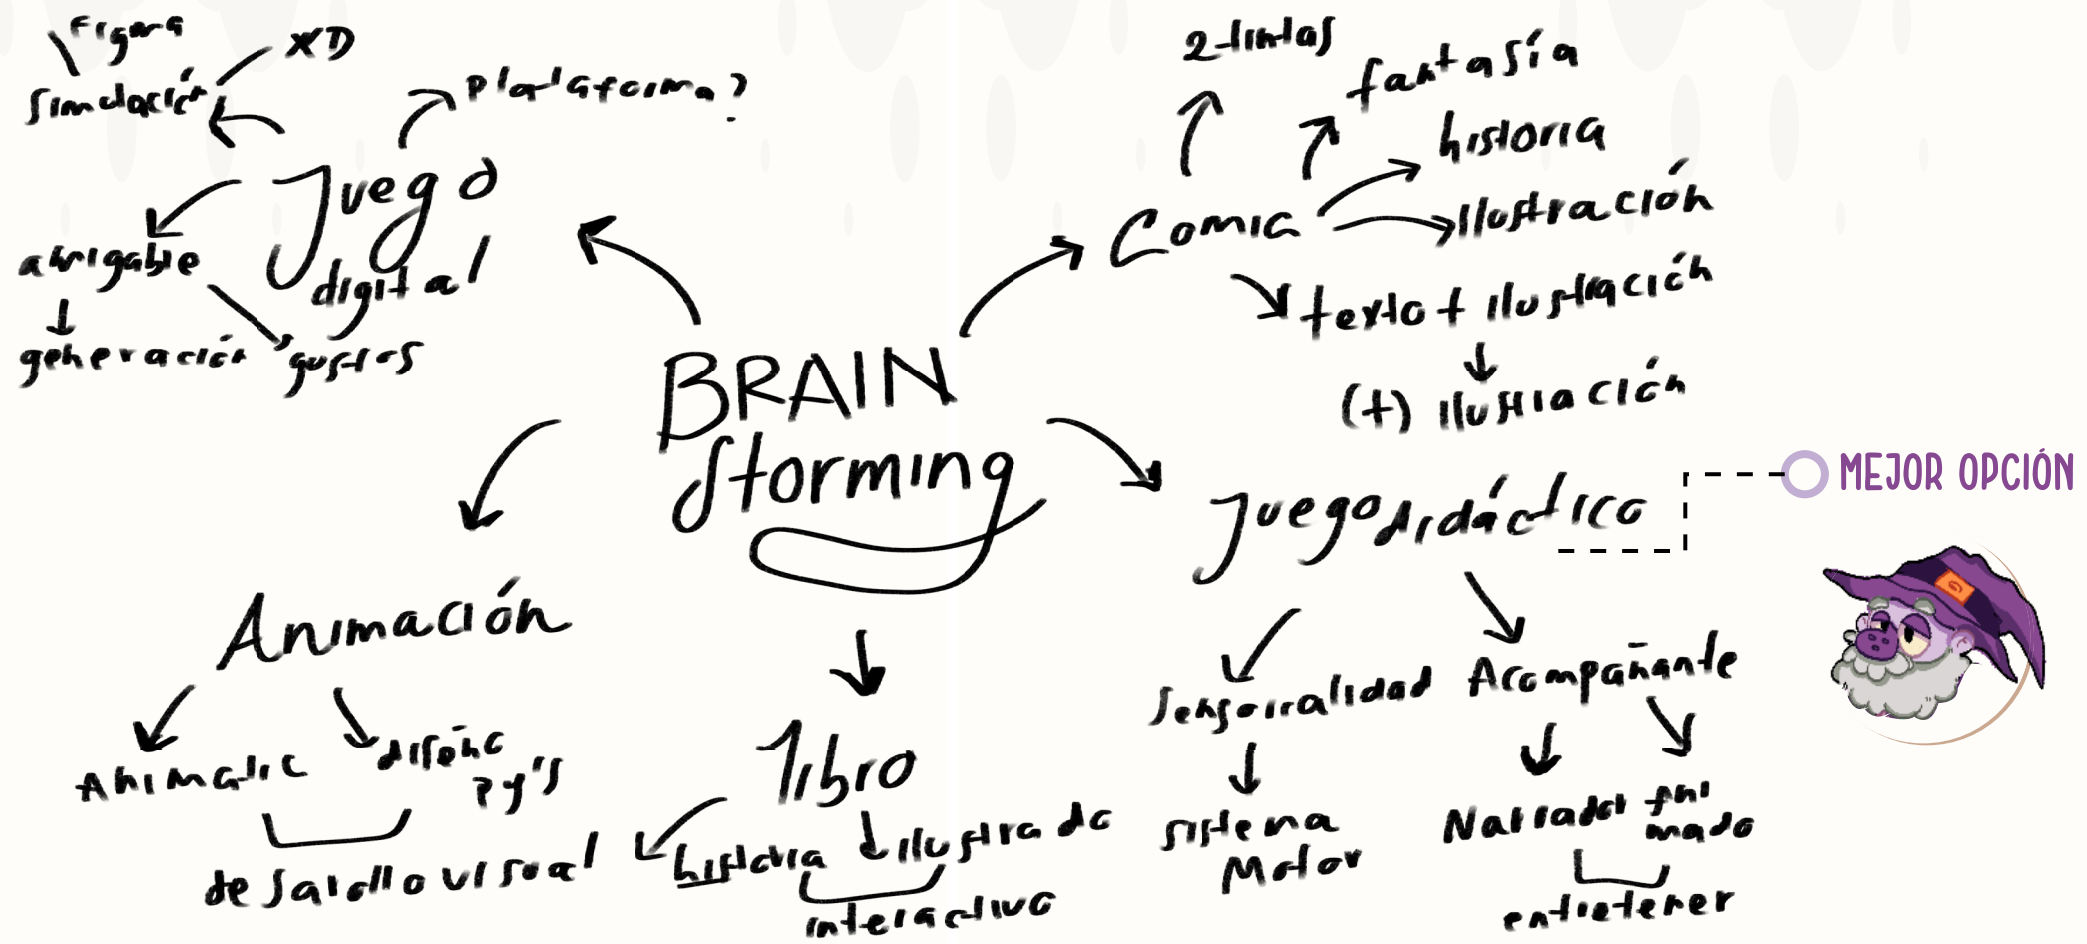 Figma
XD
simulación
Plataforma?
Juego
digital
amigable
generación
gustos
2 tintas
fantasía
historia
Comic
Ilustración
texto + ilustración
(+) ilustración
BRAIN
storming
Juego didáctico
MEJOR OPCIÓN
Animación
Animatic
diseño
PJ's
desarollo visual
libro
historia
ilustrado
interactivo
sensorialidad
Acompañante
sistema
Motor
Narrador
Ani
mado
entretener